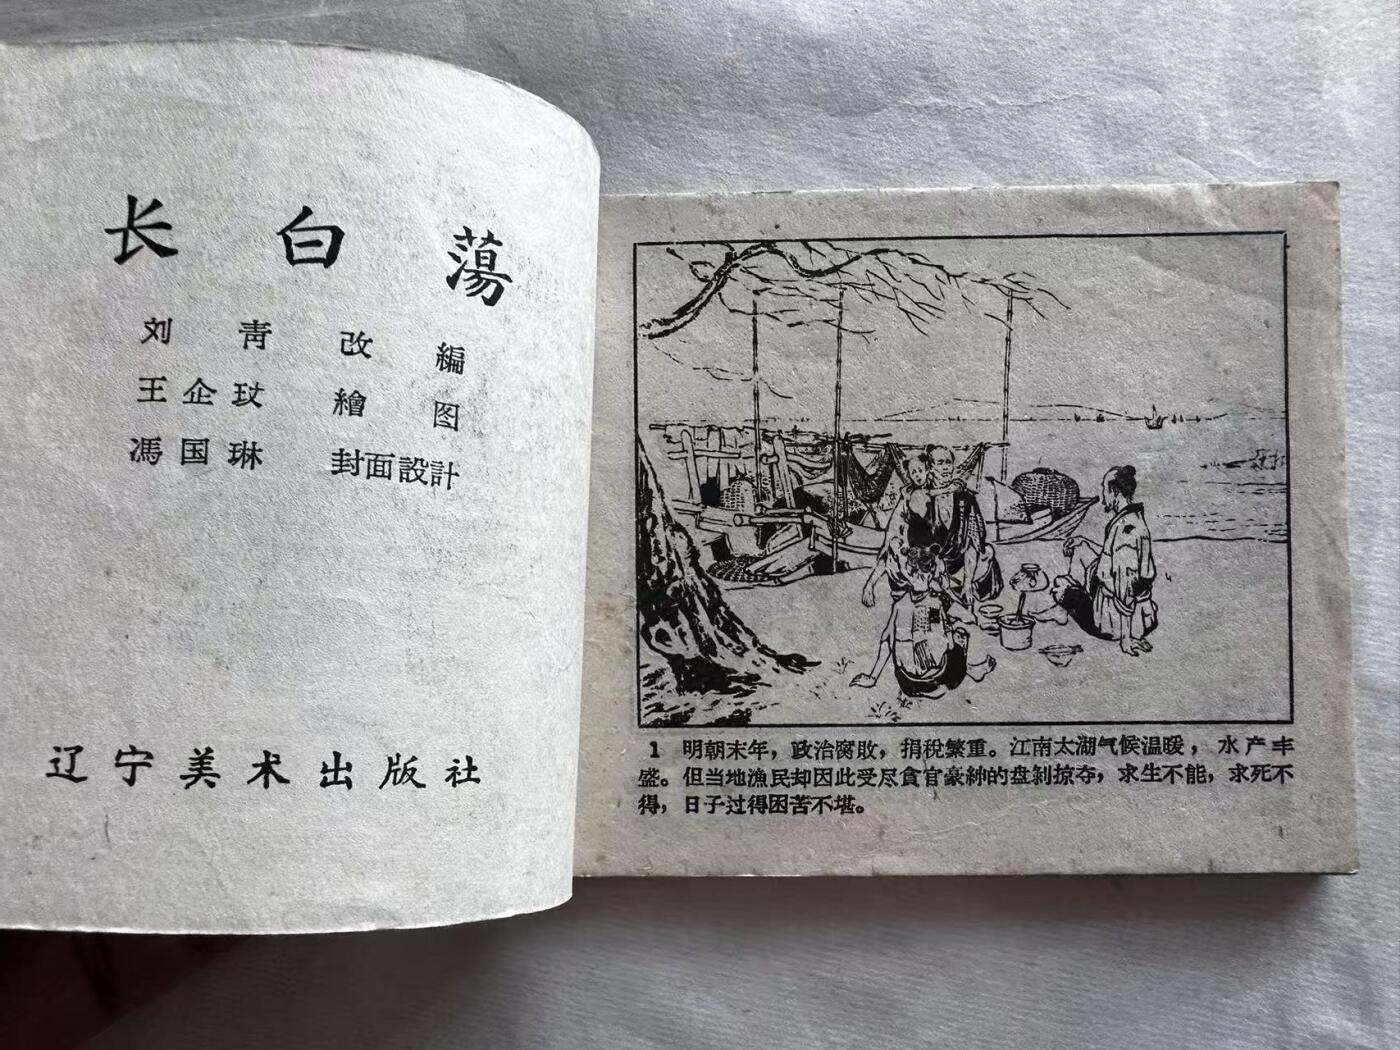 长白蕩
刘青改編
王企玟繪图
馮国琳封面設計
辽宁美术出版社
1 明朝末年，政治腐敗，捐稅繁重。江南太湖气候温暖，水产丰
盛。但当地漁民却因此受尽貪官豪紳的盘剝掠夺，求生不能，求死不
得，日子过得困苦不堪。